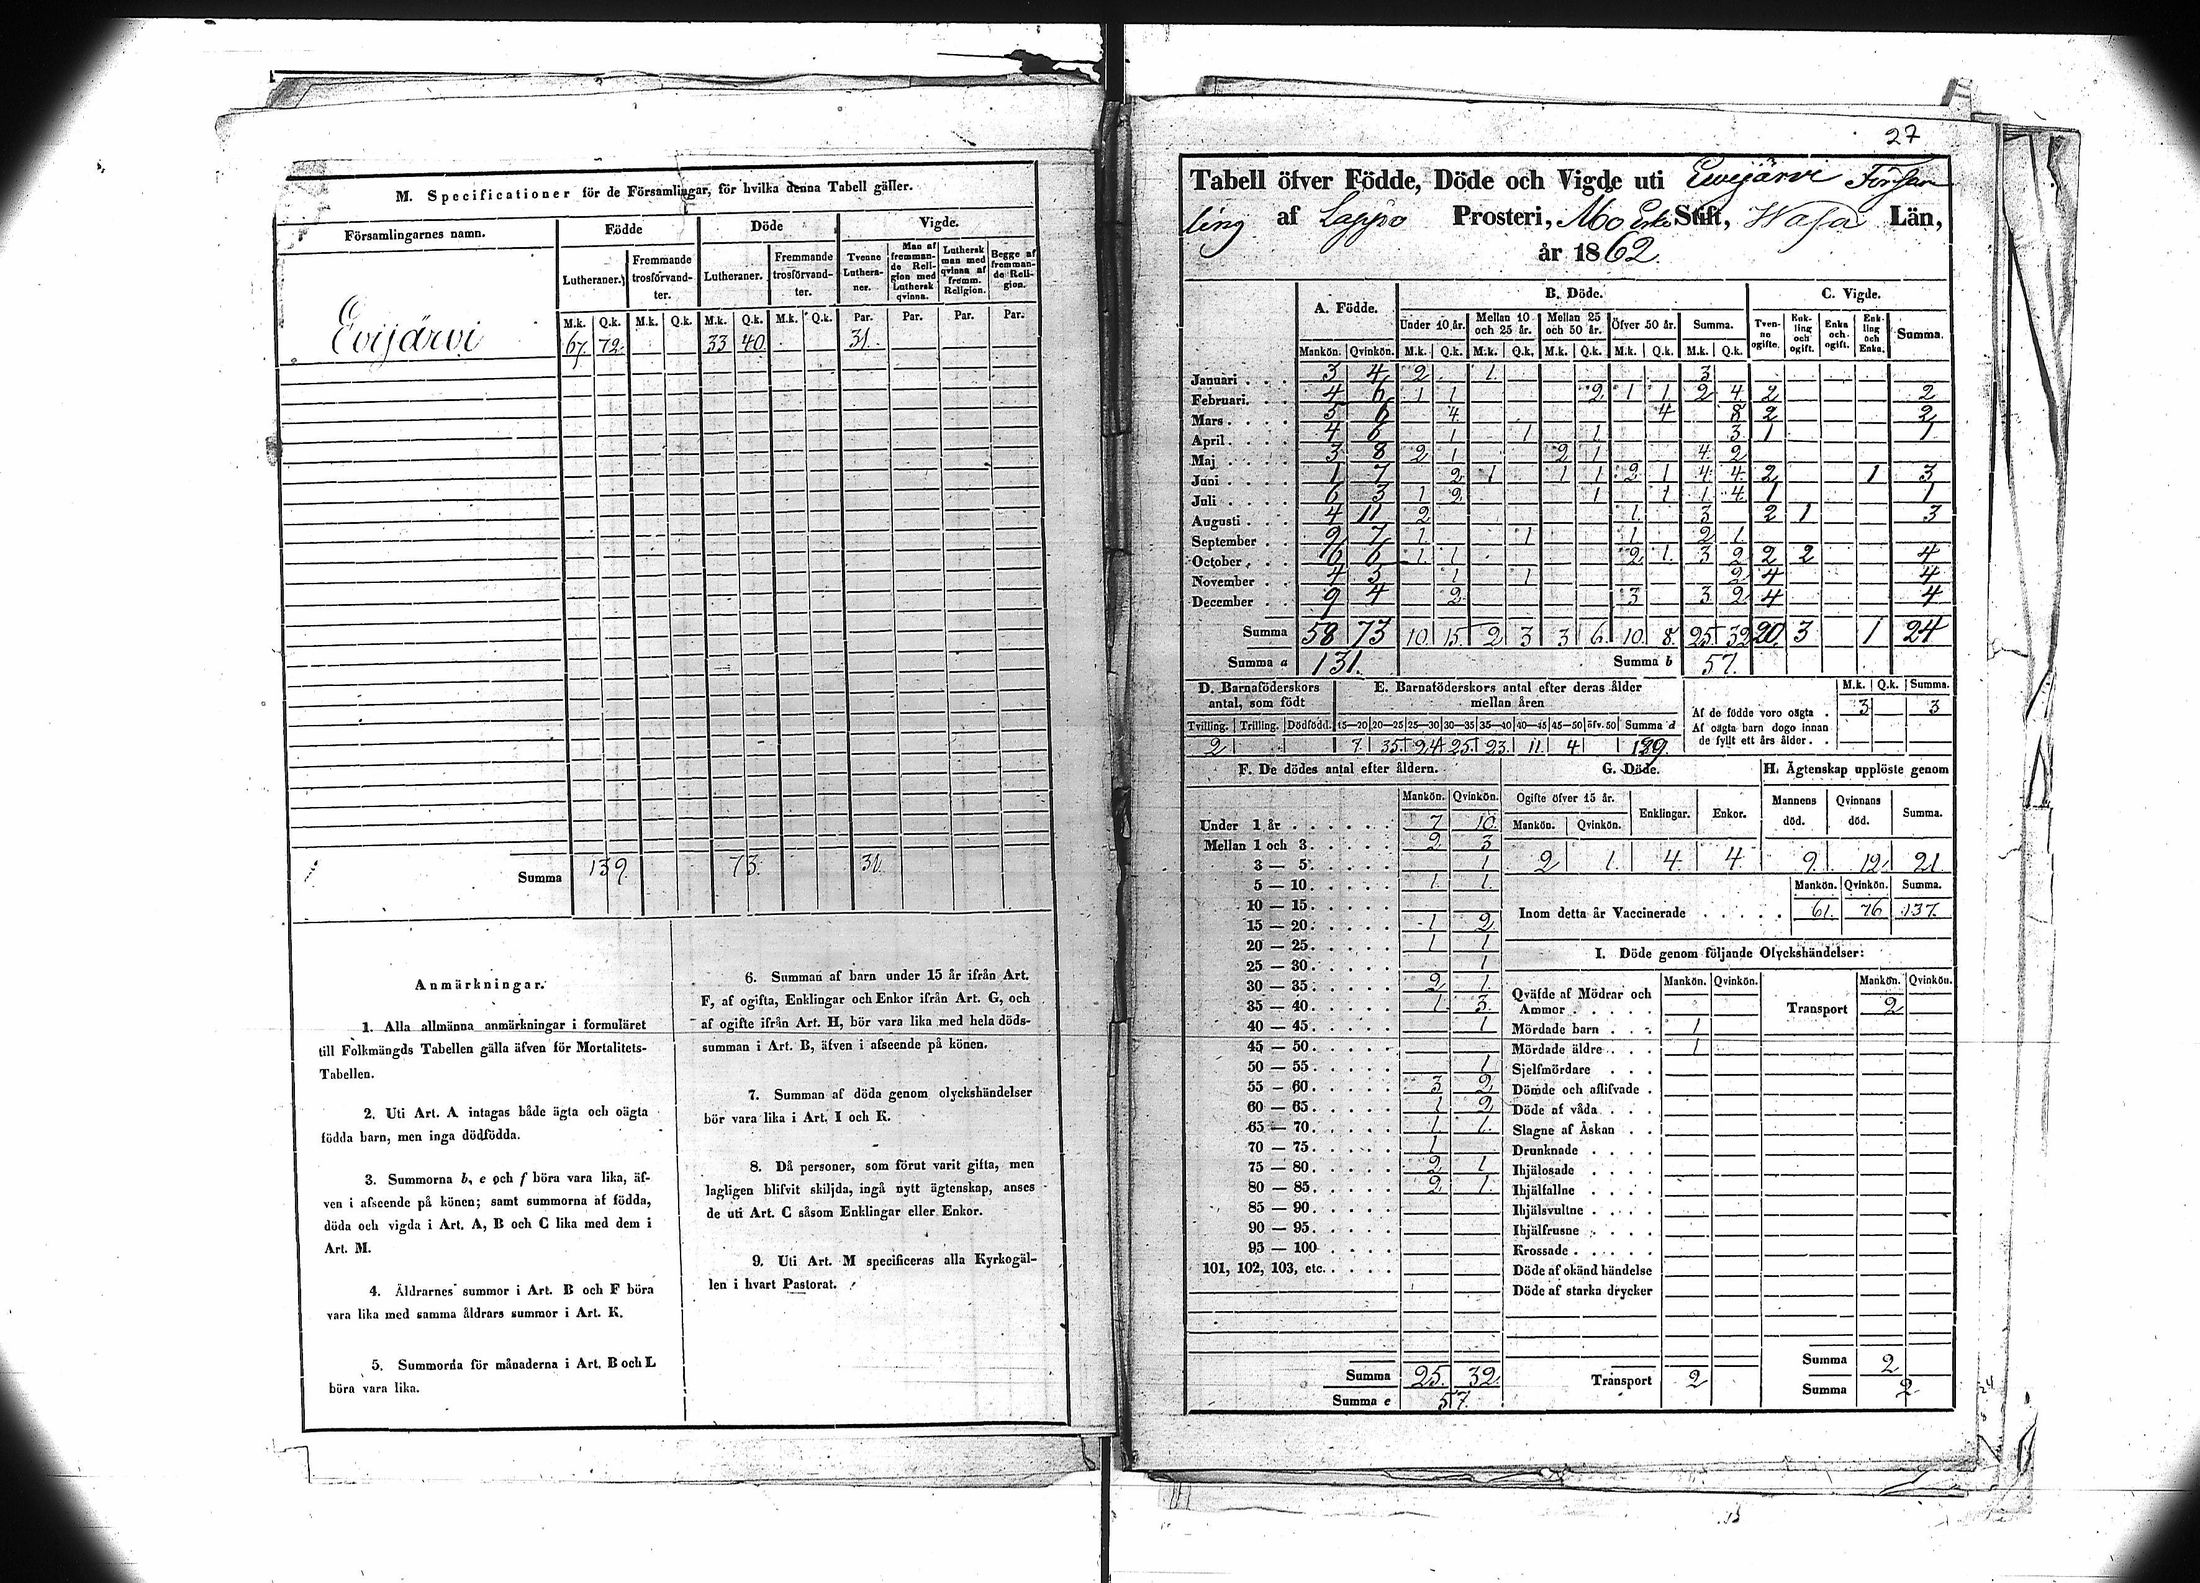 M. Specificationer för de Församlingar, för hvilka denna Tabell gäller.
Församlingarnes namn. Födde Döde Vigde.
Lutheraner. Fremmande trosförvandter. Lutheraner. Fremmande trosförvandter. Tvenne Lutheraner. Man af fremmande Religion med Luthersk qvinna. Luthersk man med qvinna af fremm. Religion. Begge af fremmande Religion.
M.k. Q.k. M.k. Q.k. M.k. Q.k. M.k. Q.k. Par. Par. Par. Par.
Evijärvi 67. 72. 33 40 31.
Summa 139. 73. 31.
Anmärkningar.
1. Alla allmänna anmärkningar i formuläret
till Folkmängds Tabellen gälla äfven för Mortalitets-
Tabellen.
2. Uti Art. A intagas både ägta och oägta
födda barn, men inga dödfödda.
3. Summorna b, e och f böra vara lika, äf-
ven i afseende på könen; samt summorna af födda,
döda och vigda i Art. A, B och C lika med dem i
Art. M.
4. Åldrarnes summor i Art. B och F böra
vara lika med samma åldrars summor i Art. K.
5. Summorna för månaderna i Art. B och L
böra vara lika.
6. Summan af barn under 15 år ifrån Art.
F, af ogifta, Enklingar och Enkor ifrån Art. G, och
af ogifte ifrån Art. H, bör vara lika med hela döds-
summan i Art. B, äfven i afseende på könen.
7. Summan af döda genom olyckshändelser
bör vara lika i Art. I och K.
8. Då personer, som förut varit gifta, men
lagligen blifvit skiljda, ingå nytt ägtenskap, anses
de uti Art. C såsom Enklingar eller Enkor.
9. Uti Art. M specificeras alla Kyrkogäl-
len i hvart Pastorat.
27
Tabell öfver Födde, Döde och Vigde uti Ewijärvi Försam
ling af Lappo Prosteri, Åbo Erke Stift, Wasa Län,
år 1862.
A. Födde. B. Döde. C. Vigde.
Under 10 år. Mellan 10 och 25 år. Mellan 25 och 50 år. Öfver 50 år. Summa. Tvenne ogifte. Enkling och ogift. Enka och ogift. Enkling och Enka. Summa.
Mankön. Qvinkön. M.k. Q.k. M.k. Q.k. M.k. Q.k. M.k. Q.k. M.k. Q.k.
Januari . . . 3 4 2 1. 3
Februari. . . 4 6 1 1 2 1 1 2 4 2 2
Mars . . . . 5 6 4 4 8 2 2
April . . . . 4 6 1 1 1 3 1 1
Maj . . . . 3 8 2 1 2 1 4 2
Juni . . . . 1 7 2 1 1 1 2 1 4 4 2 1 3
Juli . . . . 6 3 1 2 1 1 1 4 1 1
Augusti . . . 4 11 2 1. 3 2 1 3
September . . 9 7 1 1 1 2 1
October . . . 6 6 1 1 2 1. 3 2 2 2 4
November . . 4 5 1 1 2 4 4
December . . 9 4 2 3 3 2 4 4
Summa 58 73 10. 15. 2 3 3 6. 10. 8. 25 32 20. 3 1 24
Summa a 131. Summa b 57.
D. Barnaföderskors antal, som födt
E. Barnaföderskors antal efter deras ålder mellan åren
M.k. Q.k. Summa.
Tvilling. Trilling. Dödfödd. 15—20 20—25 25—30 30—35 35—40 40—45 45—50 öfv. 50 Summa d
2 7. 35. 24 25. 23. 11. 4 129.
Af de födde voro oägta . 3 3
Af oägta barn dogo innan
de fyllt ett års ålder. .
F. De dödes antal efter åldern.
Mankön. Qvinkön.
Under 1 år . . . . . . 7 10.
Mellan 1 och 3. . . . . 2 3
3 — 5. . . . . 1
5 — 10. . . . . 1. 1.
10 — 15. . . . .
15 — 20. . . . . 1 2
20 — 25. . . . . 1 1
25 — 30. . . . . 1
30 — 35. . . . . 2 1.
35 — 40. . . . . 1. 3.
40 — 45. . . . . 1
45 — 50. . . . .
50 — 55. . . . . 1
55 — 60. . . . . 3 2
60 — 65. . . . . 1 2
65 — 70. . . . . 1. 1.
70 — 75. . . . . 1
75 — 80. . . . . 2 1
80 — 85. . . . . 2 1.
85 — 90. . . . .
90 — 95. . . . .
95 — 100 . . . .
101, 102, 103, etc. . . . .
Summa 25. 32.
Summa e 57.
G. Döde.
Ogifte öfver 15 år. Enklingar. Enkor.
Mankön. Qvinkön.
2 1. 4 4
H. Ägtenskap upplöste genom
Mannens död. Qvinnans död. Summa.
9. 12. 21.
Mankön. Qvinkön. Summa.
Inom detta år Vaccinerade . . . . . 61. 76 137.
I. Döde genom följande Olyckshändelser:
Mankön. Qvinkön. Mankön. Qvinkön.
Qväfde af Mödrar och
Ammor . . . . . Transport 2
Mördade barn . . . 1
Mördade äldre . . . 1
Sjelfmördare . . .
Dömde och aflifvade .
Döde af våda. . . .
Slagne af Åskan . .
Drunknade . . . .
Ihjälosade . . . .
Ihjälfallne . . . .
Ihjälsvultne . . . .
Ihjälfrusne . . . .
Krossade . . . . .
Döde af okänd händelse
Döde af starka drycker
Summa 2
Transport 2 Summa 2